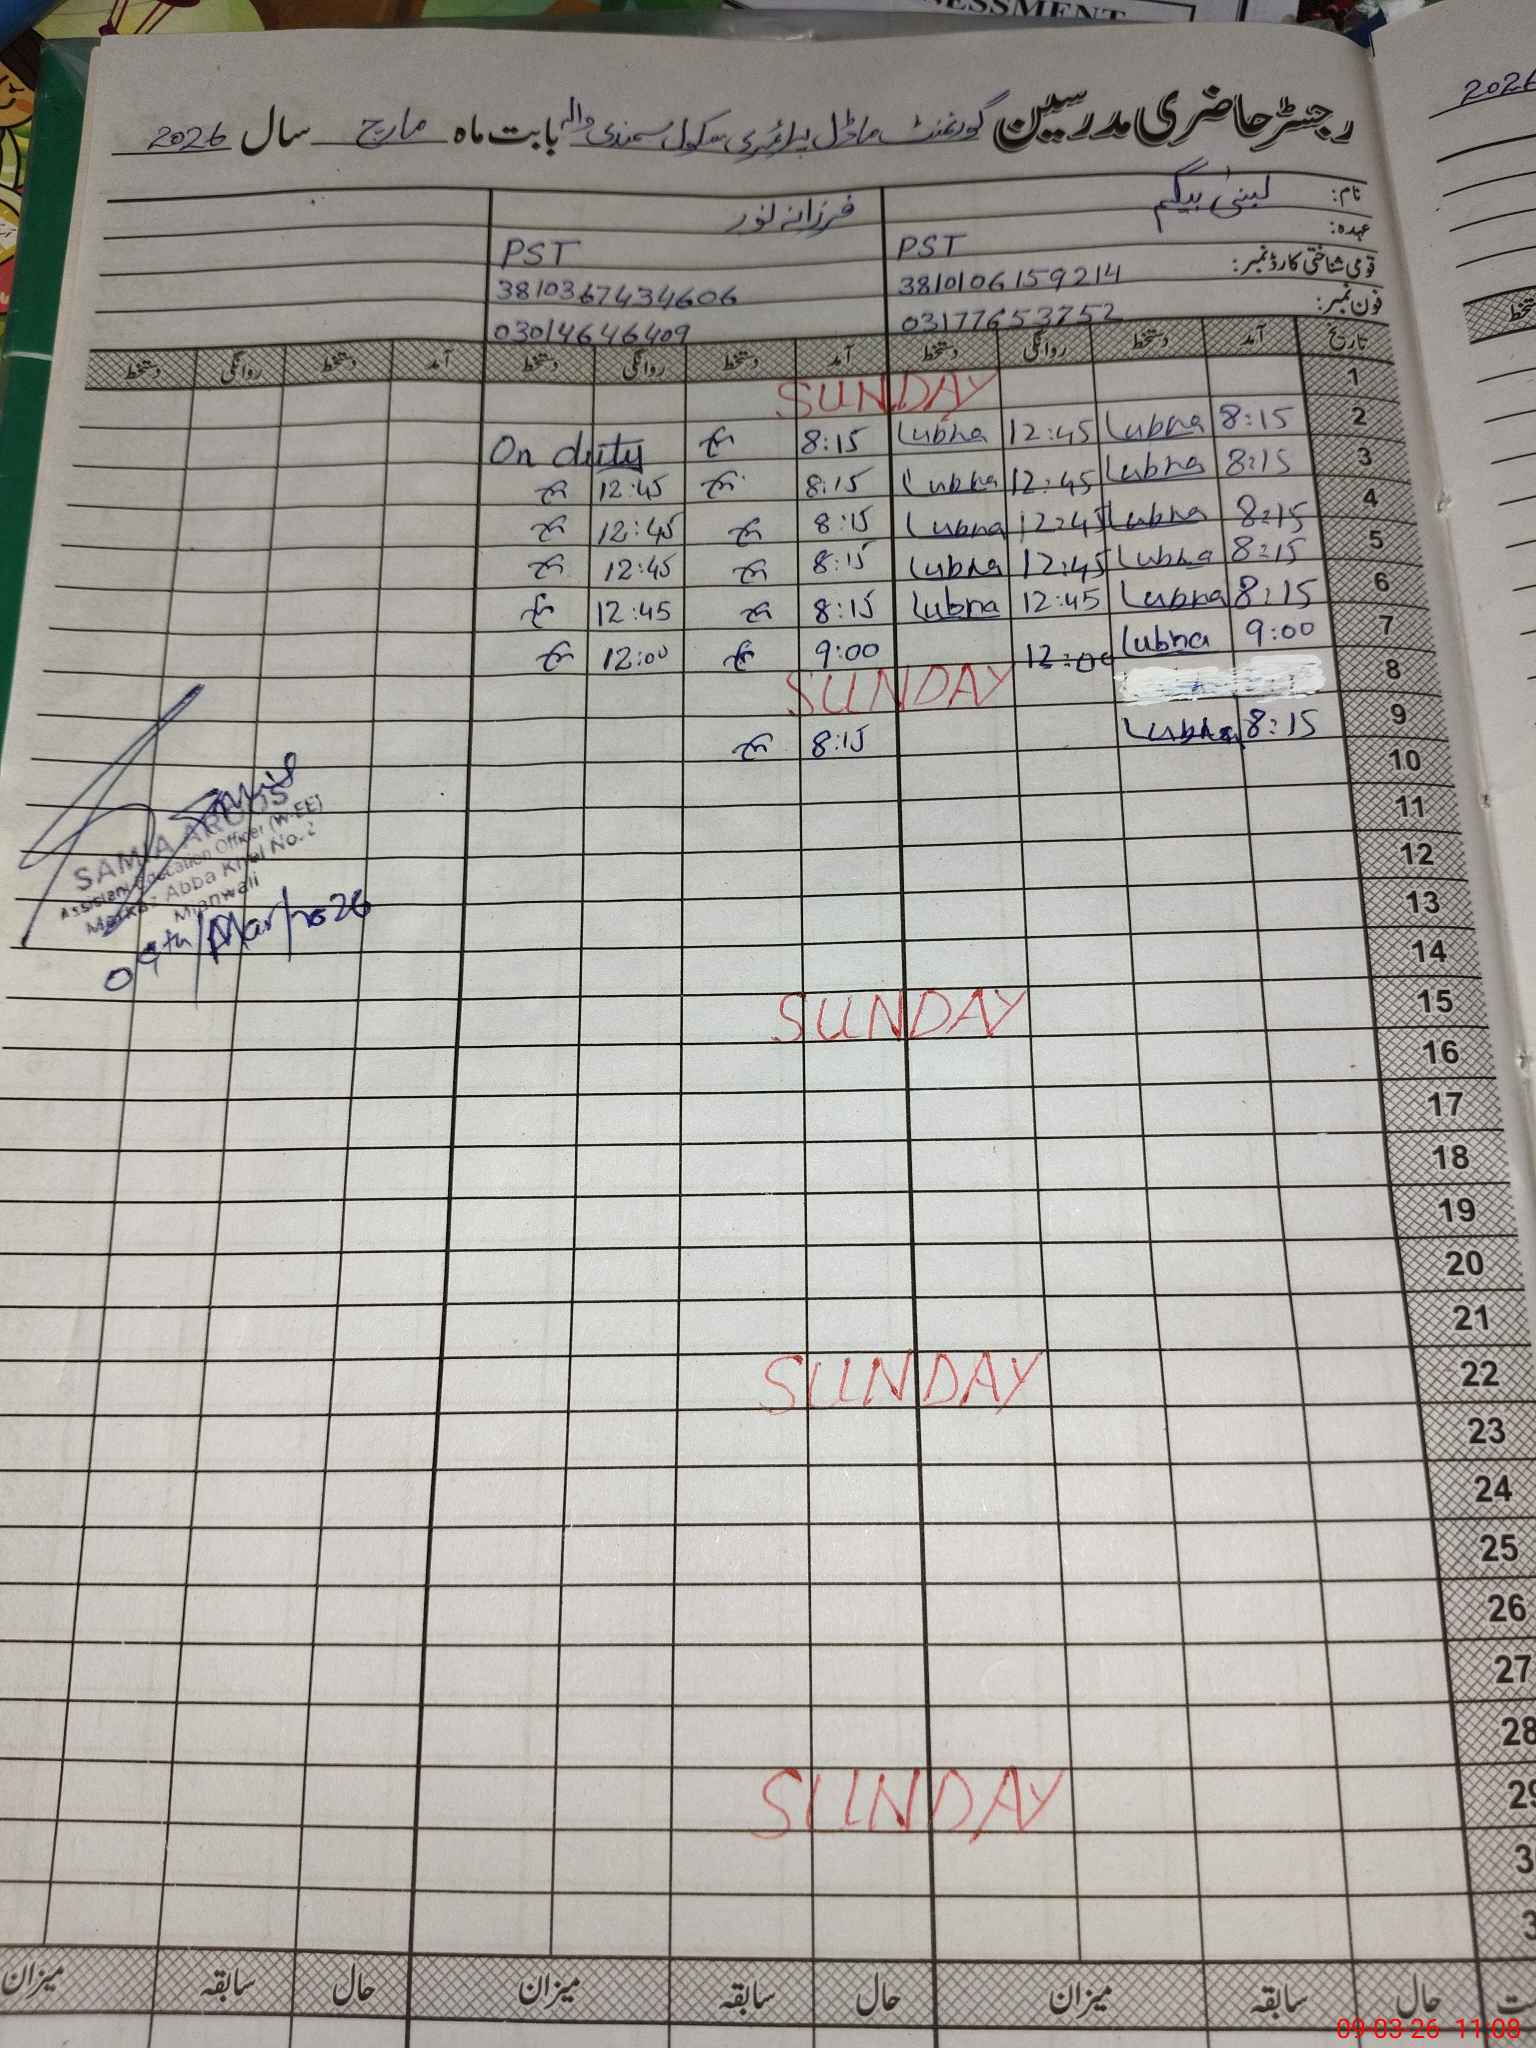 ESSMENT
رجسٹر حاضری مدرسین گورنمنٹ ماڈل پرائمری سکول سمندی والہ بابت ماہ مارچ سال 2026
2026
نام: لبنیٰ بیگم فرزانہ نور
عہدہ: PST PST
قومی شناختی کارڈ نمبر: 3810106159214 3810367434606
فون نمبر: 03177653752 03014646409
تاریخ آمد دستخط روانگی دستخط آمد دستخط روانگی دستخط آمد دستخط روانگی دستخط
1 SUNDAY
2 8:15 Lubna 12:45 Lubna 8:15 On duty
3 8:15 Lubna 12:45 Lubna 8:15 12:45
4 8:15 Lubna 12:45 Lubna 8:15 12:45
5 8:15 Lubna 12:45 Lubna 8:15 12:45
6 8:15 Lubna 12:45 Lubna 8:15 12:45
7 9:00 Lubna 12:00 9:00 12:00
8 SUNDAY
9 8:15 Lubna 8:15
10
11
12
13
14
15 SUNDAY
16
17
18
19
20
21
22 SUNDAY
23
24
25
26
27
28
29 SUNDAY
SAMIA AROOS
Assistant Education Officer (W-EE)
Markaz Abba Khel No. 2
Mianwali
09th/Mar/2026
حال سابقہ میزان حال سابقہ میزان حال سابقہ میزان
09-03-26 11:08